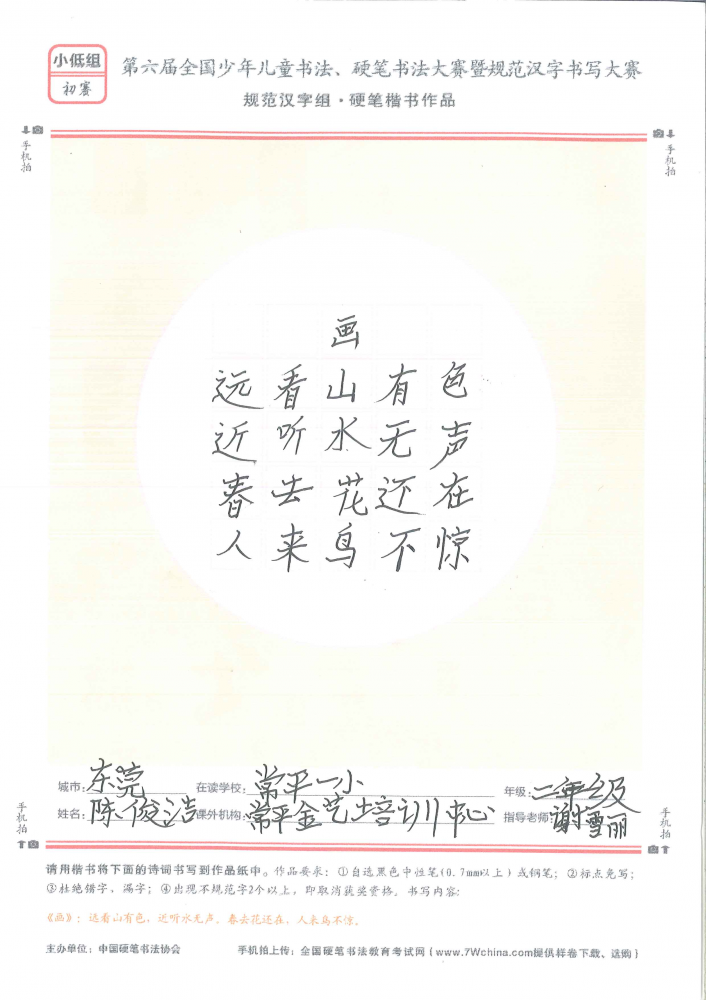 小低组
初赛
第六届全国少年儿童书法、硬笔书法大赛暨规范汉字书写大赛
规范汉字组·硬笔楷书作品
手机拍
手机拍
画
远看山有色
近听水无声
春去花还在
人来鸟不惊
城市: 东莞 在读学校: 常平一小 年级: 二年级
姓名: 陈俊浩 课外机构: 常平金艺培训中心 指导老师: 谢雪丽
手机拍
手机拍
请用楷书将下面的诗词书写到作品纸中。作品要求：①自选黑色中性笔(0.7mm以上)或钢笔；②标点免写；
③杜绝错字、漏字；④出现不规范字2个以上，即取消获奖资格。书写内容：
《画》：远看山有色，近听水无声。春去花还在，人来鸟不惊。
主办单位：中国硬笔书法协会 手机拍上传：全国硬笔书法教育考试网(www.7Wchina.com提供样卷下载、选购)